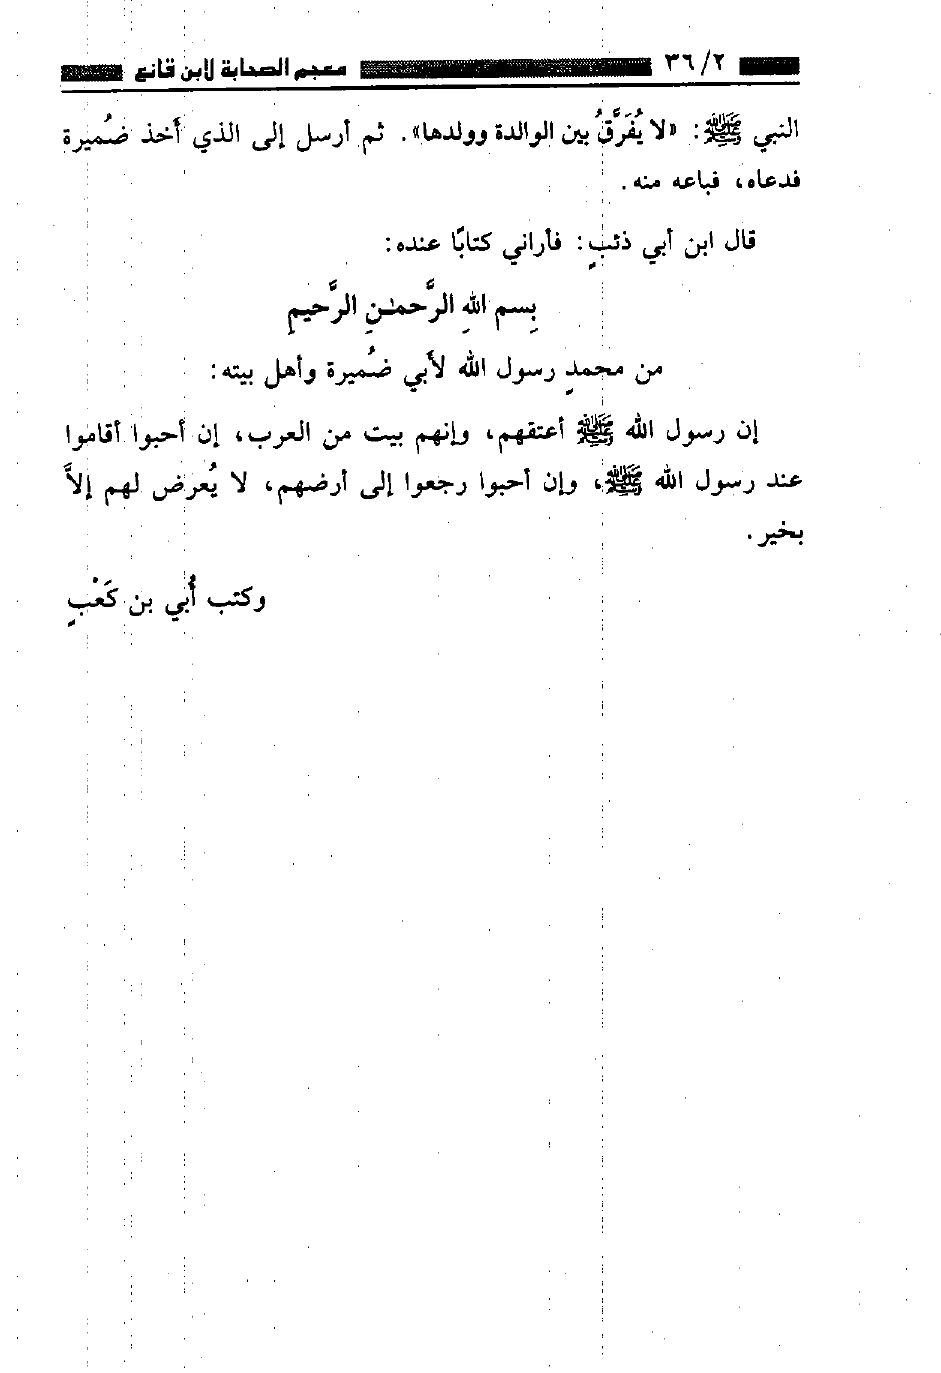 ٣٦/٢ معجم الصحابة لابن قانع
النبي ﷺ: «لا يُفَرَّقُ بين الوالدة وولدها». ثم أرسل إلى الذي أَخذ ضُميرة
فدعاه، فباعه منه.
قال ابن أبي ذئبٍ: فأراني كتابًا عنده:
بِسم اللهِ الرَّحمٰنِ الرَّحيمِ
من محمدٍ رسول الله لأَبي ضُميرة وأهل بيته:
إن رسول الله ﷺ أعتقهم، وإنهم بيت من العرب، إن أحبوا أقاموا
عند رسول الله ﷺ، وإن أحبوا رجعوا إلى أرضهم، لا يُعرض لهم إلاَّ
بخير.
وكتب أُبي بن كَعْبٍ